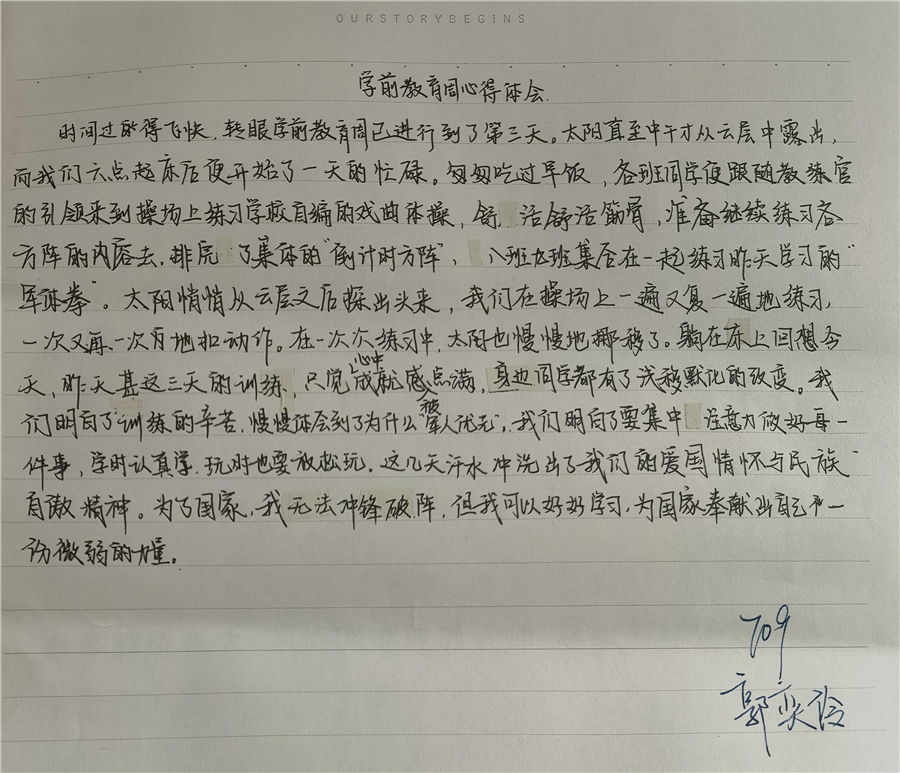 OURSTORYBEGINS
学前教育周心得体会.
时间过的得飞快,转眼学前教育周已进行到了第三天。太阳直至中午才从云层中露出,
而我们六点起床后便开始了一天的忙碌。匆匆吃过早饭,各班同学便跟随教练官
的引领来到操场上练习学校自编的戏曲体操,舒活舒活筋骨,准备继续练习各
方阵的内容去,排完了集体的“倒计时方阵”,八班九班集合在一起练习昨天学习的“
军体拳”。太阳悄悄从云层之后探出头来,我们在操场上一遍又复一遍地练习,
一次又再一次有地扣动作。在一次次练习中,太阳也慢慢地挪移了。躺在床上回想今
天,昨天甚这三天的训练,只觉心中成就感点满,身边同学都有了浅移默化的改变。我
们明白了训练的辛苦,慢慢体会到了为什么被“军人优先”,我们明白了要集中注意力做好每一
件事,学时认真学,玩时也要放松玩。这几天汗水冲洗出了我们的爱国情怀与民族
自傲精神。为了国家,我无法冲锋破阵,但我可以好好学习,为国家奉献出自己的一
份微弱的力量。
709
郭奕